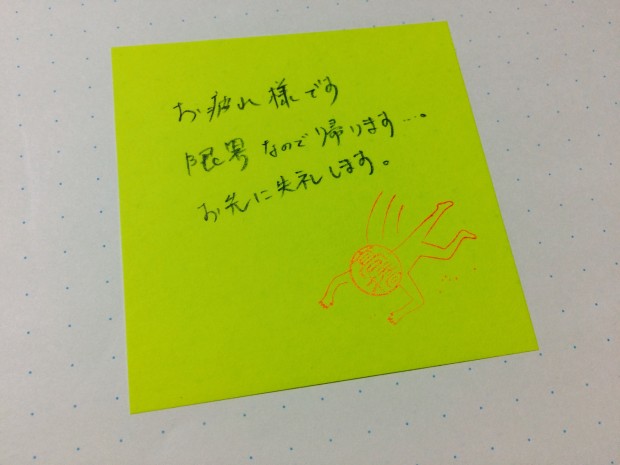 お疲れ様です
限界なので帰ります…。
お先に失礼します。